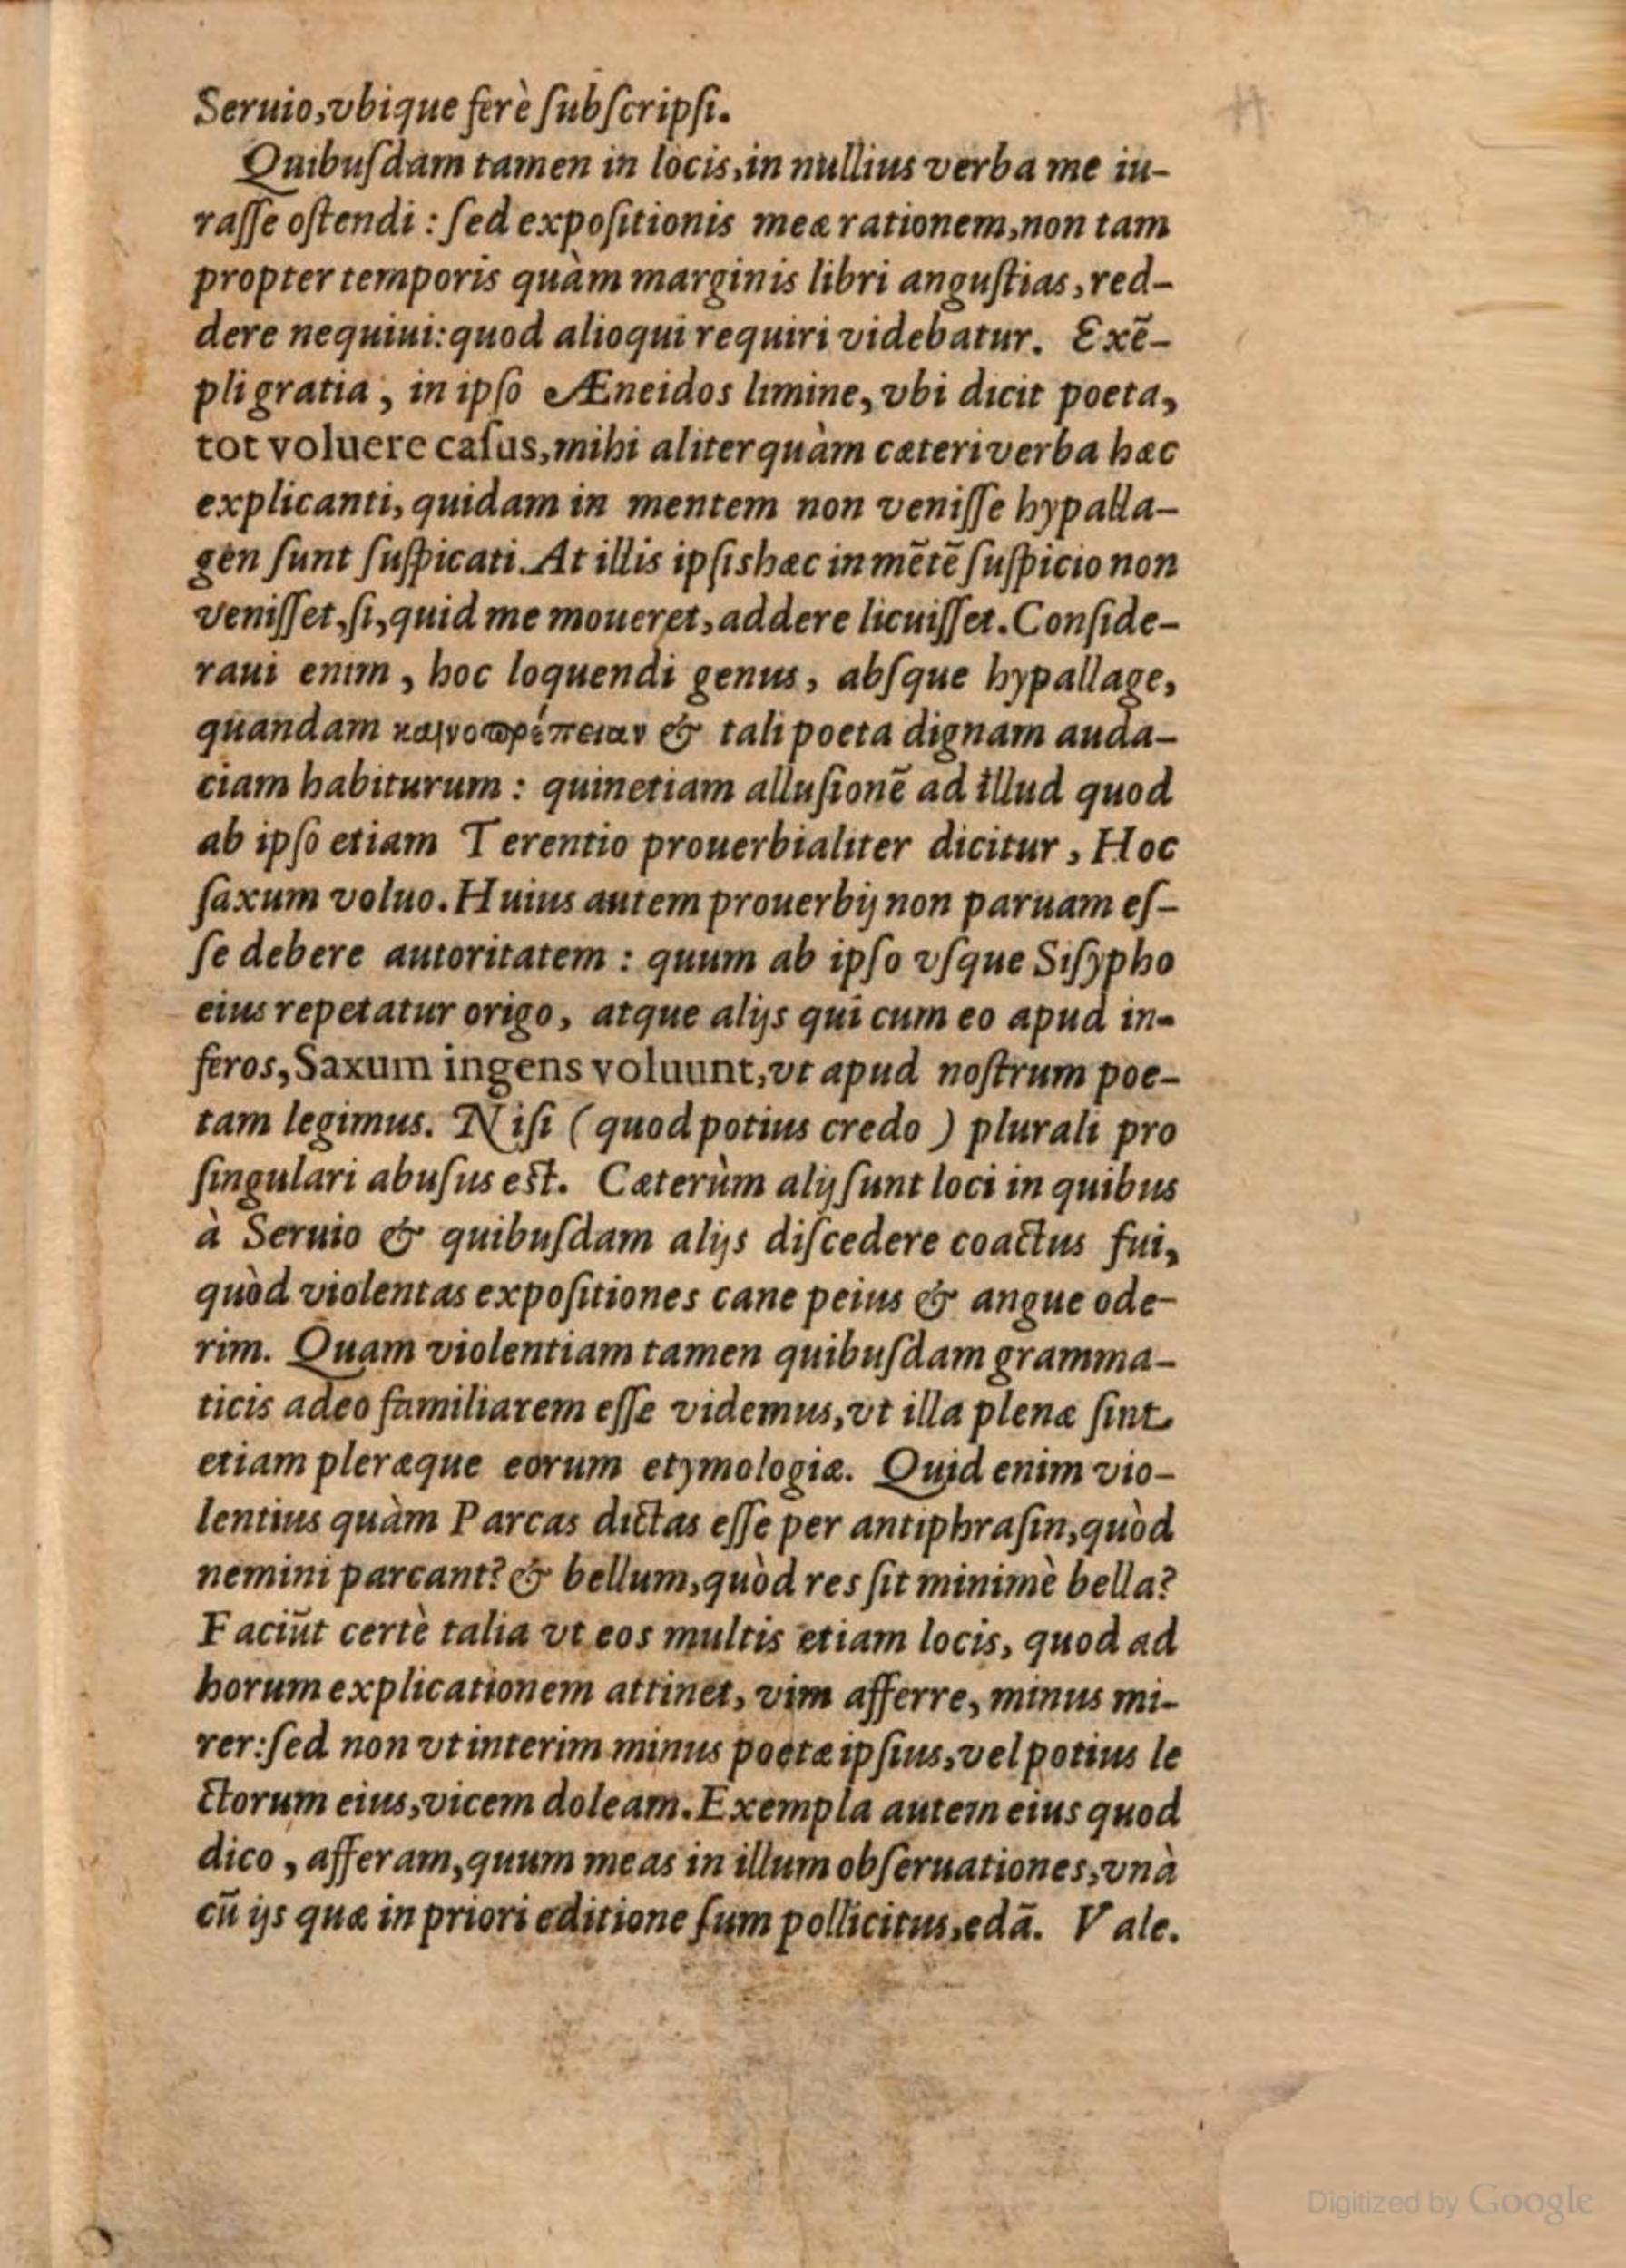 Seruio,vbique ferè ſubſcripſi.
Quibuſdam tamen in locis,in nullius verba me iu-
raſſe oſtendi : ſed expoſitionis meæ rationem,non tam
propter temporis quàm marginis libri anguſtias, red-
dere nequiui: quod alioqui requiri videbatur. Exē-
pli gratia , in ipſo Æneidos limine, vbi dicit poeta,
tot voluere caſus, mihi aliter quàm cæteri verba hæc
explicanti, quidam in mentem non veniſſe hypalla-
gen ſunt ſuſpicati. At illis ipſis hæc in mētē ſuſpicio non
veniſſet,ſi,quid me moueret,addere licuiſſet. Conſide-
raui enim , hoc loquendi genus, abſque hypallage,
quandam καινοπρέπειαν & tali poeta dignam auda-
ciam habiturum : quinetiam alluſionē ad illud quod
ab ipſo etiam Terentio prouerbialiter dicitur , Hoc
ſaxum voluo. Huius autem prouerbij non paruam eſ-
ſe debere autoritatem : quum ab ipſo vſque Siſypho
eius repetatur origo, atque alijs qui cum eo apud in-
feros, Saxum ingens voluunt, vt apud noſtrum poe-
tam legimus. Niſi ( quod potius credo ) plurali pro
ſingulari abuſus eſt. Cæterùm alij ſunt loci in quibus
à Seruio & quibuſdam alijs diſcedere coactus fui,
quòd violentas expoſitiones cane peius & angue ode-
rim. Quam violentiam tamen quibuſdam gramma-
ticis adeo familiarem eſſe videmus, vt illa plenæ ſint
etiam pleræque eorum etymologiæ. Quid enim vio-
lentius quàm Parcas dictas eſſe per antiphraſin, quòd
nemini parcant? & bellum, quòd res ſit minimè bella?
Faciūt certè talia vt eos multis etiam locis, quod ad
horum explicationem attinet, vim afferre, minus mi-
rer: ſed non vt interim minus poetæ ipſius, vel potius le
ctorum eius, vicem doleam. Exempla autem eius quod
dico , afferam, quum meas in illum obſeruationes, vnà
cū ijs quæ in priori editione ſum pollicitus, edā. Vale.
Digitized by Google